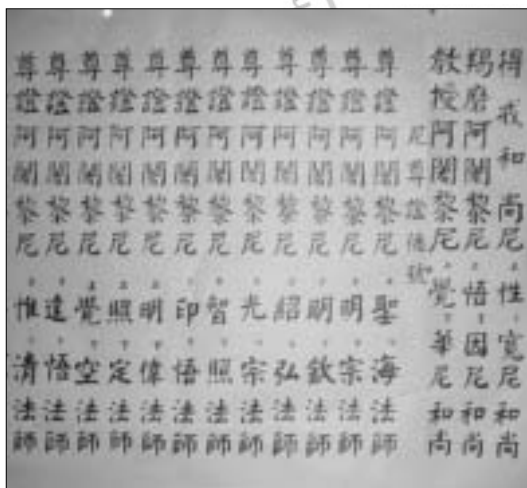 得戒和尚尼性寬尼和尚
羯磨阿闍黎尼悟因尼和尚
教授阿闍黎尼覺華尼和尚
尼尊證德號
尊證阿闍黎尼聖海法師
尊證阿闍黎尼明宗法師
尊證阿闍黎尼明欽法師
尊證阿闍黎尼紹弘法師
尊證阿闍黎尼光宗法師
尊證阿闍黎尼智照法師
尊證阿闍黎尼印悟法師
尊證阿闍黎尼明偉法師
尊證阿闍黎尼照定法師
尊證阿闍黎尼覺空法師
尊證阿闍黎尼達悟法師
尊證阿闍黎尼惟清法師